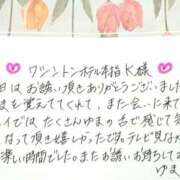 ワシントンホテル本指K様
日は お誘い頂きありがとうございました
まを覚えててくれて、また会いに来て
イではたくさんゆまの舌で感じて
なって頂き嬉しかったです。テレビ見な
楽しい時間でしたのまたお誘いお待ちしてま
ゆま